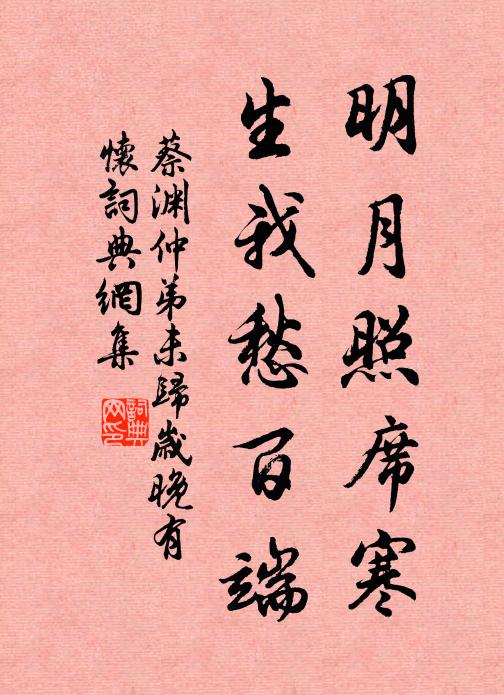 明月照席寒
生我愁百端
蔡渊仲弟未歸歲晚有
懷詞典網集
詞典
网印